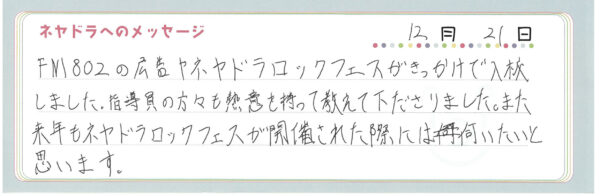 ネヤドラへのメッセージ
12月 21日
FM802の広告やネヤドラロックフェスがきっかけで入校
しました。指導員の方々も熱意を持って教えて下ださりました。また
来年もネヤドラロックフェスが開催された際には伺いたいと
思います。